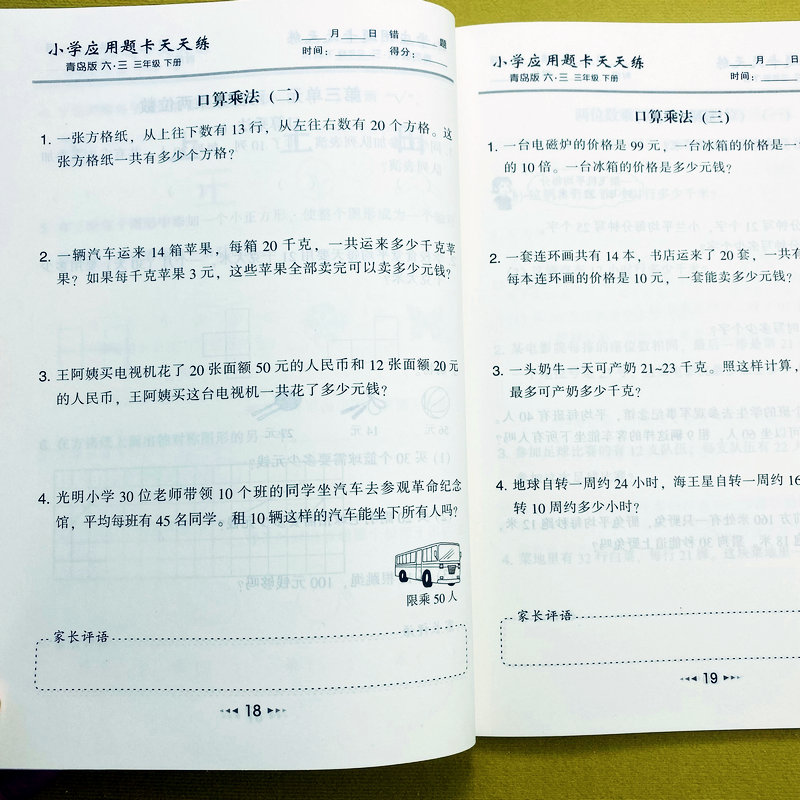 小学应用题卡天天练
青岛版 六·三 三年级 下册
____月____日 错____题
时间：____ 得分：____
口算乘法（二）
1. 一张方格纸，从上往下数有 13 行，从左往右数有 20 个方格。这
张方格纸一共有多少个方格？
2. 一辆汽车运来 14 箱苹果，每箱 20 千克，一共运来多少千克苹
果？如果每千克苹果 3 元，这些苹果全部卖完可以卖多少元钱？
3. 王阿姨买电视机花了 20 张面额 50 元的人民币和 12 张面额 20 元
的人民币，王阿姨买这台电视机一共花了多少元钱？
4. 光明小学 30 位老师带领 10 个班的同学坐汽车去参观革命纪念
馆，平均每班有 45 名同学。租 10 辆这样的汽车能坐下所有人吗？
限乘 50 人
家长评语
18
小学应用题卡天天练
青岛版 六·三 三年级 下册
____月____日
时间：
口算乘法（三）
1. 一台电磁炉的价格是 99 元，一台冰箱的价格是一
的 10 倍。一台冰箱的价格是多少元钱？
2. 一套连环画共有 14 本，书店运来了 20 套，一共有
每本连环画的价格是 10 元，一套能卖多少元钱？
3. 一头奶牛一天可产奶 21~23 千克。照这样计算，
最多可产奶多少千克？
4. 地球自转一周约 24 小时，海王星自转一周约 16
转 10 周约多少小时？
家长评语
19